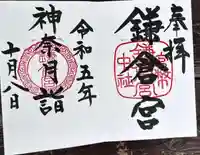 奉拝
鎌倉宮
令和五年
神奈月詣
十月八日